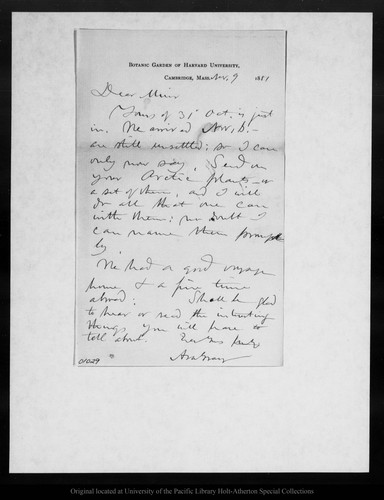 BOTANIC GARDEN OF HARVARD UNIVERSITY,
CAMBRIDGE, MASS. Nov. 9 1881
Dear Muir
Yours of 31 Oct. is just
in. We arrived Nov.
are still unsettled; so I can
only now say, Send on
your Arctic plants - or
a set of them, and I will
do all that one can
with them; no doubt I
can name them prompt
ly
We had a good voyage
home & a fine time
abroad; Shall be glad
to hear or read the interesting
things you will have to
tell about. Ever Yrs truly
Asa Gray
01029
Original located at University of the Pacific Library Holt-Atherton Special Collections